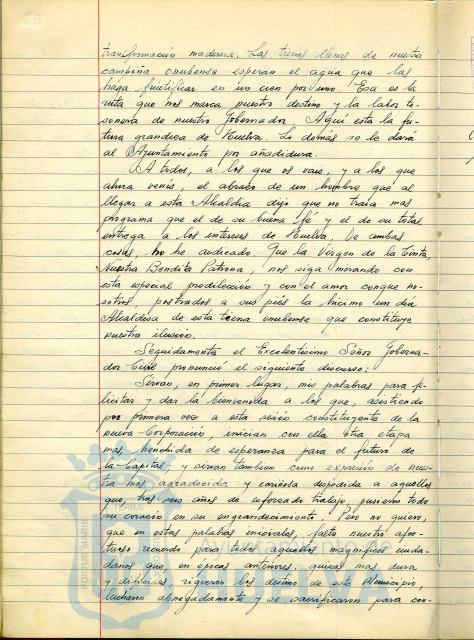 transformación maderera. Las tierras llenas de nuestra
campiña onubense esperan el agua que las
haga fructificar en un cien por uno. Esa es la
ruta que nos marca nuestro destino y la labor te-
sonera de nuestro Gobernador. Aquí esta la fu-
tura grandeza de Huelva. Lo demás se le dará
al Ayuntamiento por añadidura.
A todos, a los que os vais, y a los que
ahora venis, el abrazo de un hombre que al
llegar a esta Alcaldia dijo que no traia mas
programa que el de su buena fé y el de su total
entrega a los intereses de Huelva. De ambas
cosas, no he abdicado. Que la Virgen de la Cinta,
Nuestra Bendita Patrona, nos siga mirando con
esta especial predilección y con el amor conque no-
sotros, postrados a sus piés la hicimo un dia
Alcaldesa de esta tierra onubense que constituye
nuestra ilusión.
Seguidamente el Excelentísimo Señor Goberna-
dor Civil pronunció el siguiente discurso:
Sirvan, en primer lugar, mis palabras para fe-
licitar y dar la bienvenida a los que, asistiendo
por primera vez a esta sesión constituyente de la
nueva Corporación, inician con ella otra etapa
mas, henchida de esperanza para el futuro de
la Capital; y sirvan tambien como expresión de nues-
tra mas agradecida y cariñosa despedida a aquellos
que, tras sus años de esforzado trabajo, pusieron todo
su corazón en su engrandecimiento. Pero no quiero,
que en estas palabras iniciales, falte nuestro afec-
tuoso recuerdo para todos aquellos magnificos ciuda-
danos que, en epocas anteriores, quizas mas dura
y dificiles, rigieron los destino de este Municipio,
lucharon abnegadamente y se sacrificaron para con-
PORTUS MARIS
TERRAE